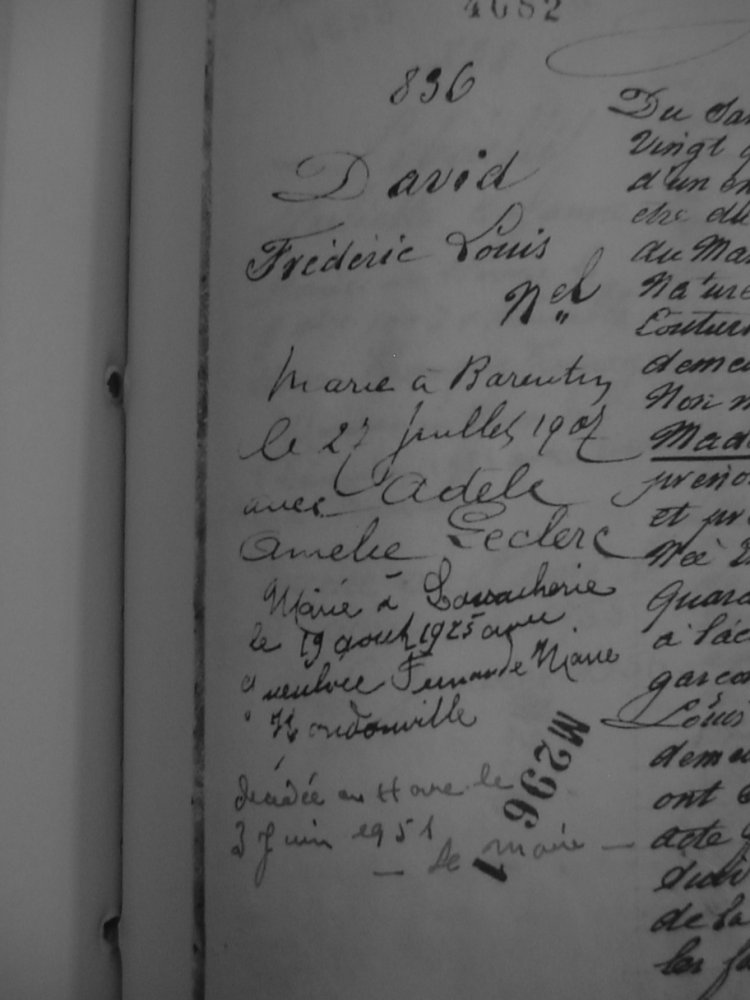 4682
836
David
Frédéric Louis
Nel
Marié à Barentin
le 27 juillet 1907
avec Adèle
Amélie Leclerc
Marié à
le 19 août 1925 avec
Fernande Marie
Hondouville
décédée au Havre le
3 juin 1951
— le maire —
M296
1
Du Sam
Vingt
d'un en
che du
du Mat
Nature
Coutur
demeu
Non m
Mad
préno
et pr
Née
Quara
à l'ac
garço
Louis
demeu
ont
acte
de la
les